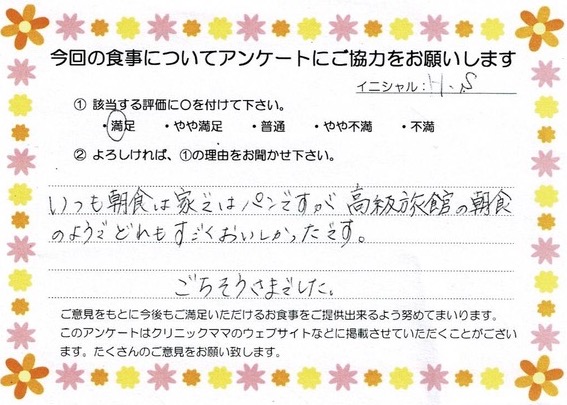 今回の食事についてアンケートにご協力をお願いします
イニシャル：H.S
① 該当する評価に〇を付けて下さい。
・満足　・やや満足　・普通　・やや不満　・不満
② よろしければ、①の理由をお聞かせ下さい。
いつも朝食は家ではパンですが 高級旅館の朝食
のようでどれもすごくおいしかったです。
ごちそうさまでした。
ご意見をもとに今後もご満足いただけるお食事をご提供出来るよう努めてまいります。
このアンケートはクリニックママのウェブサイトなどに掲載させていただくことがござい
ます。たくさんのご意見をお願い致します。